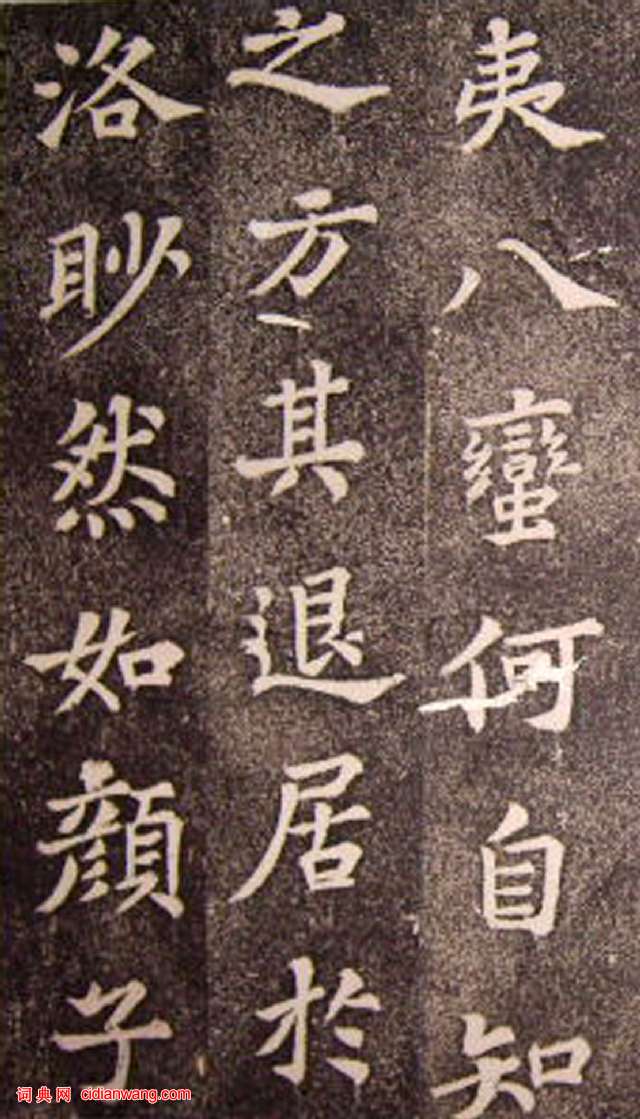 夷八蠻何自知
之方其退居於
洛眇然如顏子
词典网 cidianwang.com